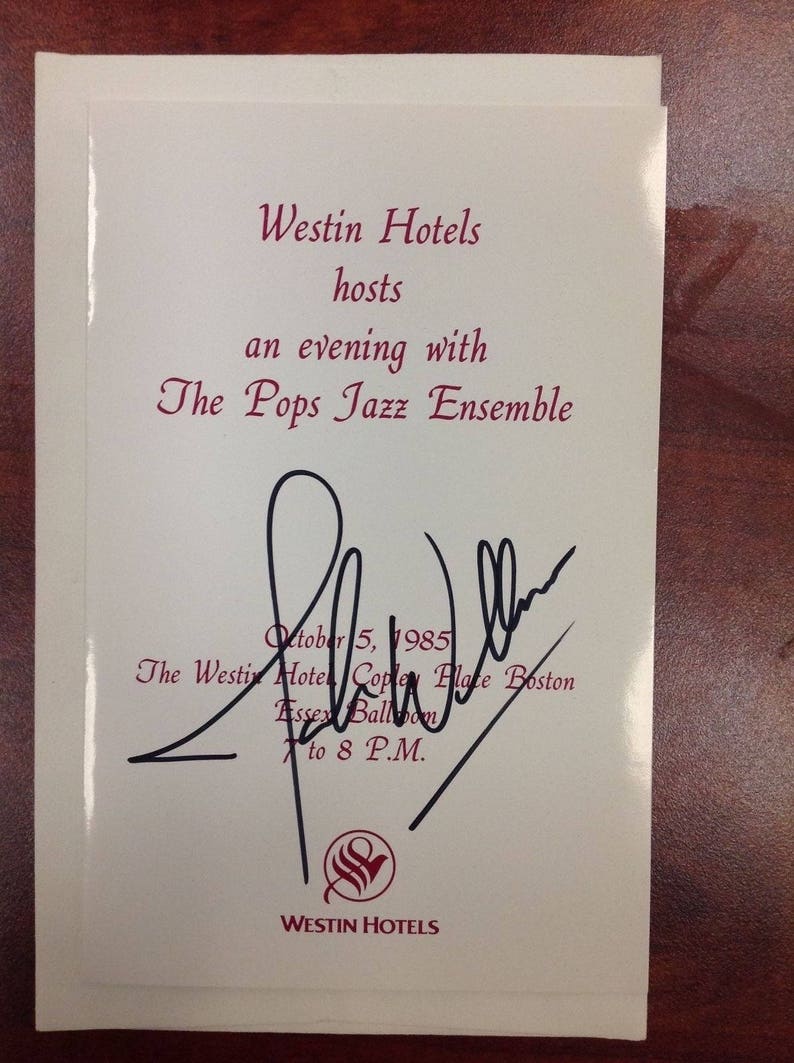 Westin Hotels
hosts
an evening with
The Pops Jazz Ensemble
John Williams
October 5, 1985
The Westin Hotel, Copley Place Boston
Essex Ballroom
7 to 8 P.M.
WESTIN HOTELS